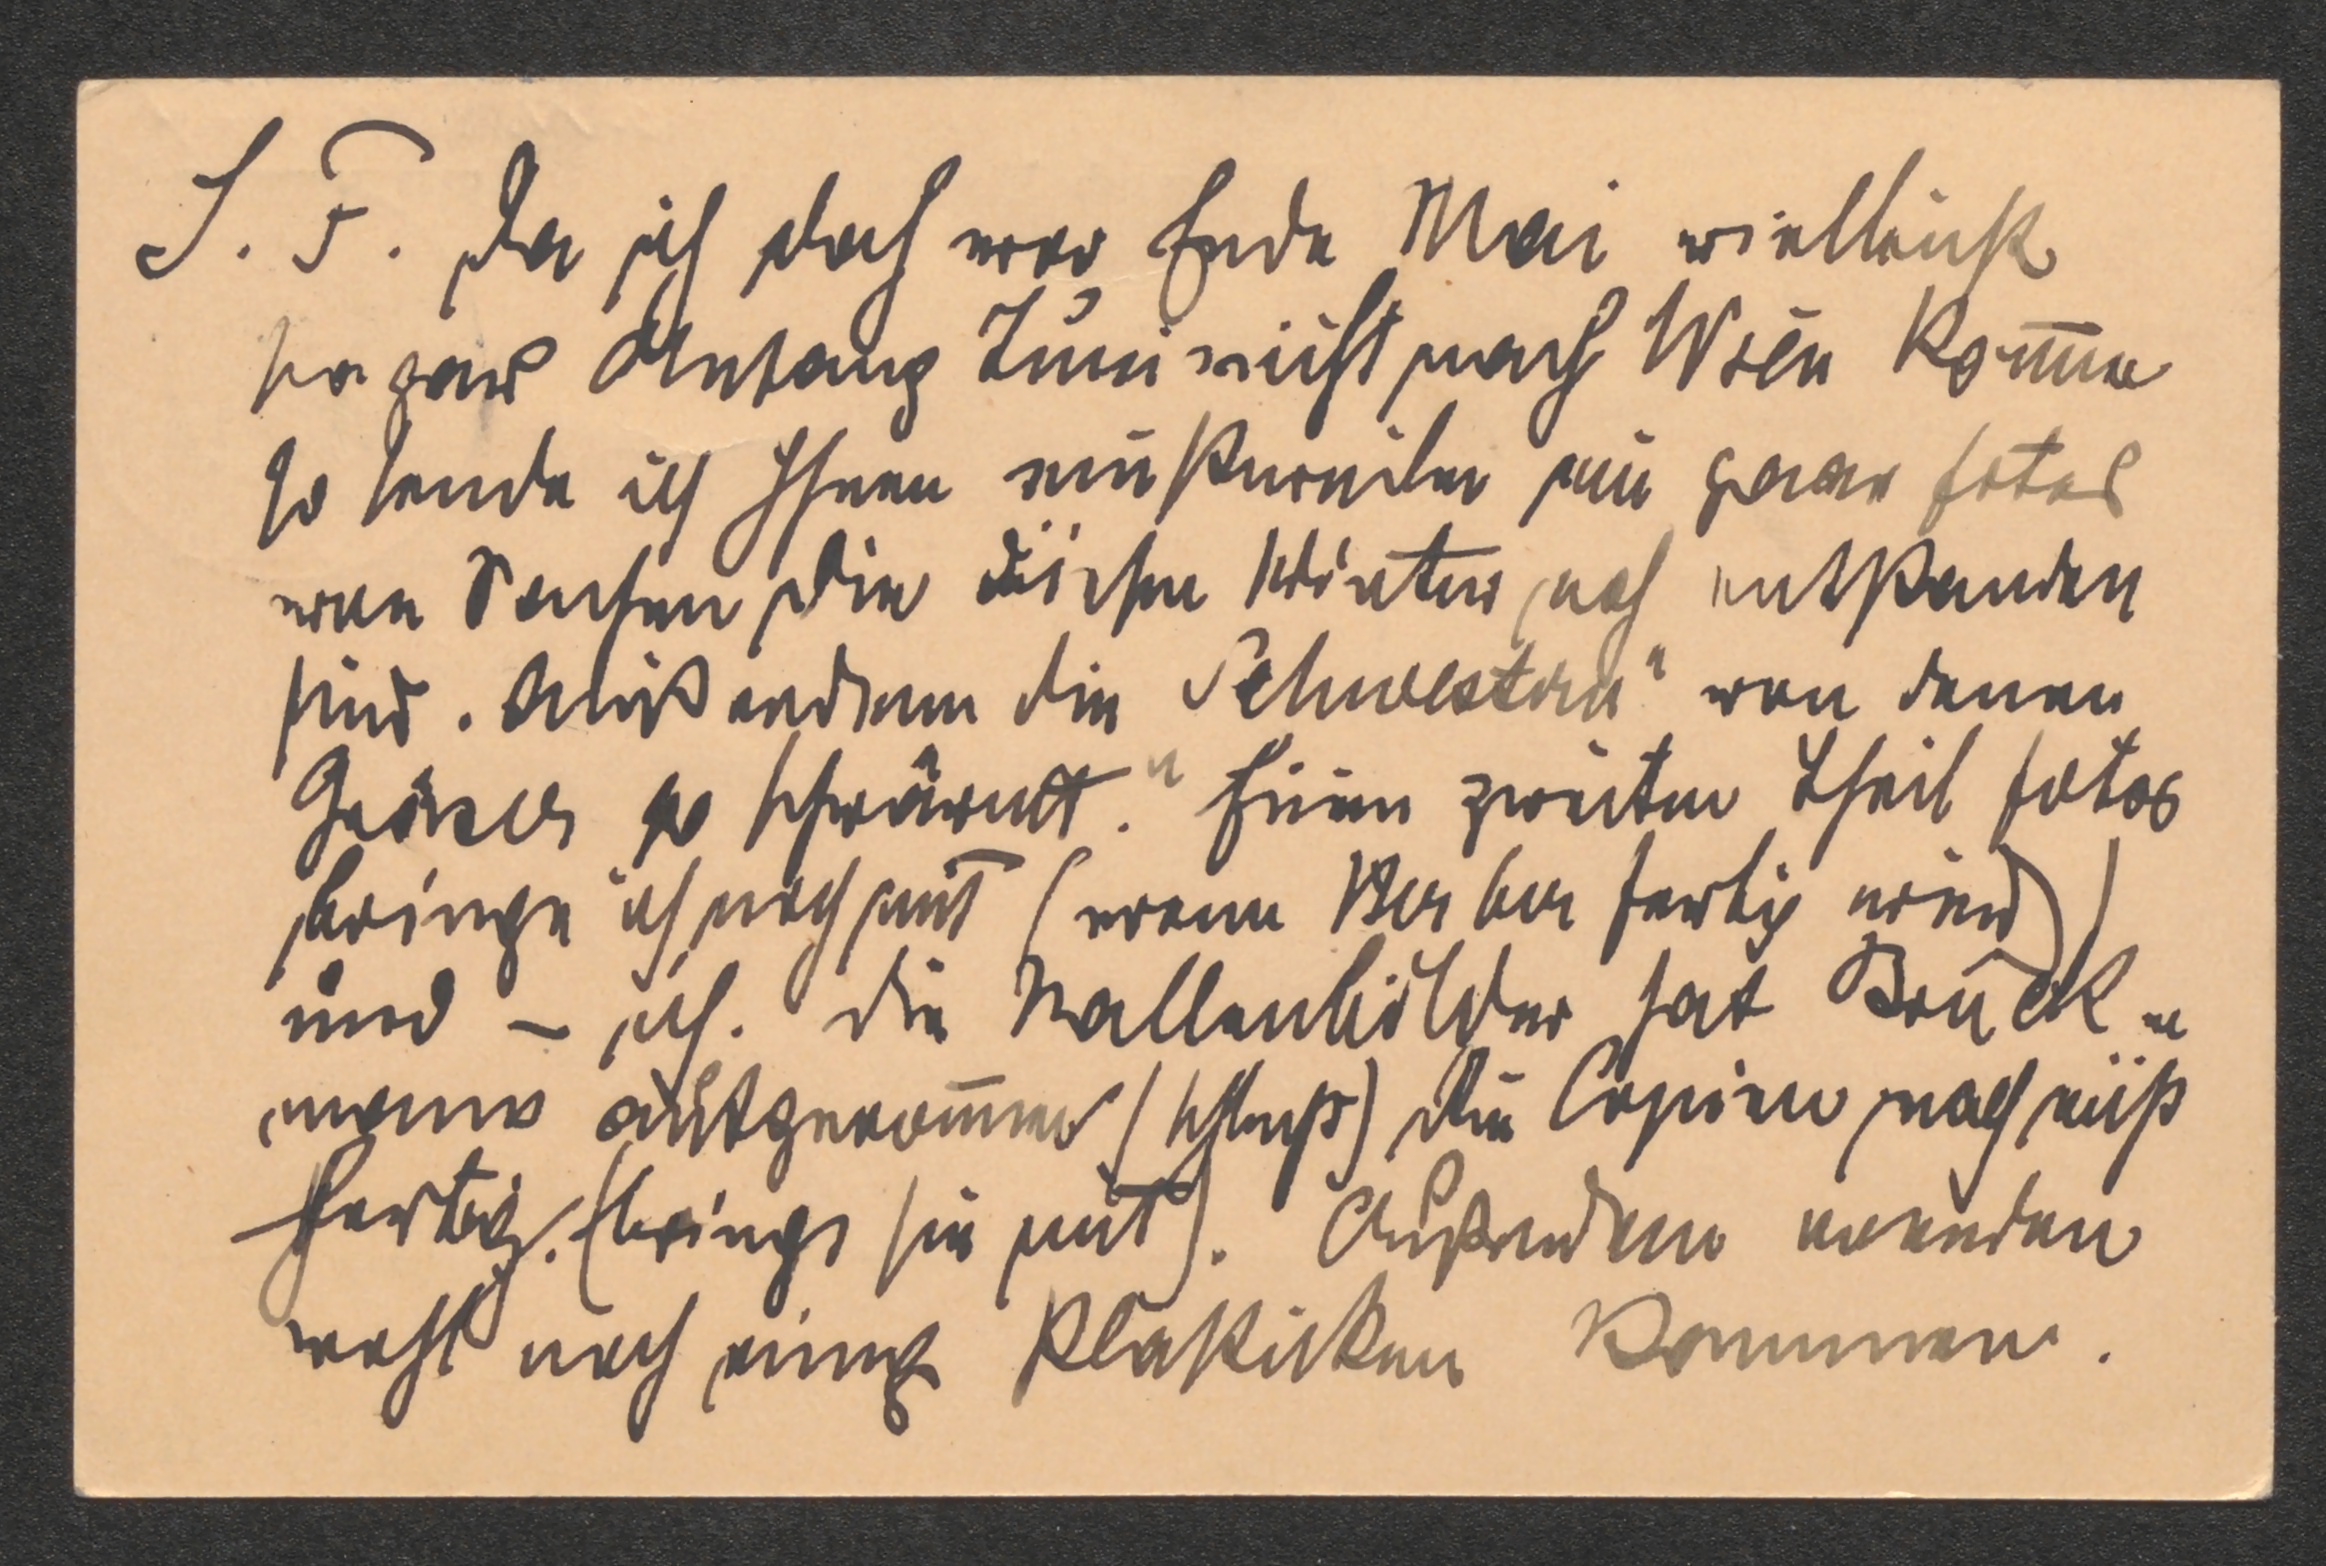 S. F. Da ich doch vor Ende Mai vielleicht
sogar Anfang Juni nicht nach Wien kom̅e
so sende ich Ihnen einstweilen ein paar fotos
von Sachen die diesen Winter noch entstanden
sind. Außerdem die Schwestern" von denen
so schwärmt." Einen zweiten Theil fotos
bringe ich noch mit (wenn Berber fertig wird)
und – ich. Die Wallenbilder hat Bruck-
mann aufgenom̅en (scheußl) die Copien noch nicht
fertig. (bringe sie mit). Außerdem werden
wohl noch einige Plastiken kommen.